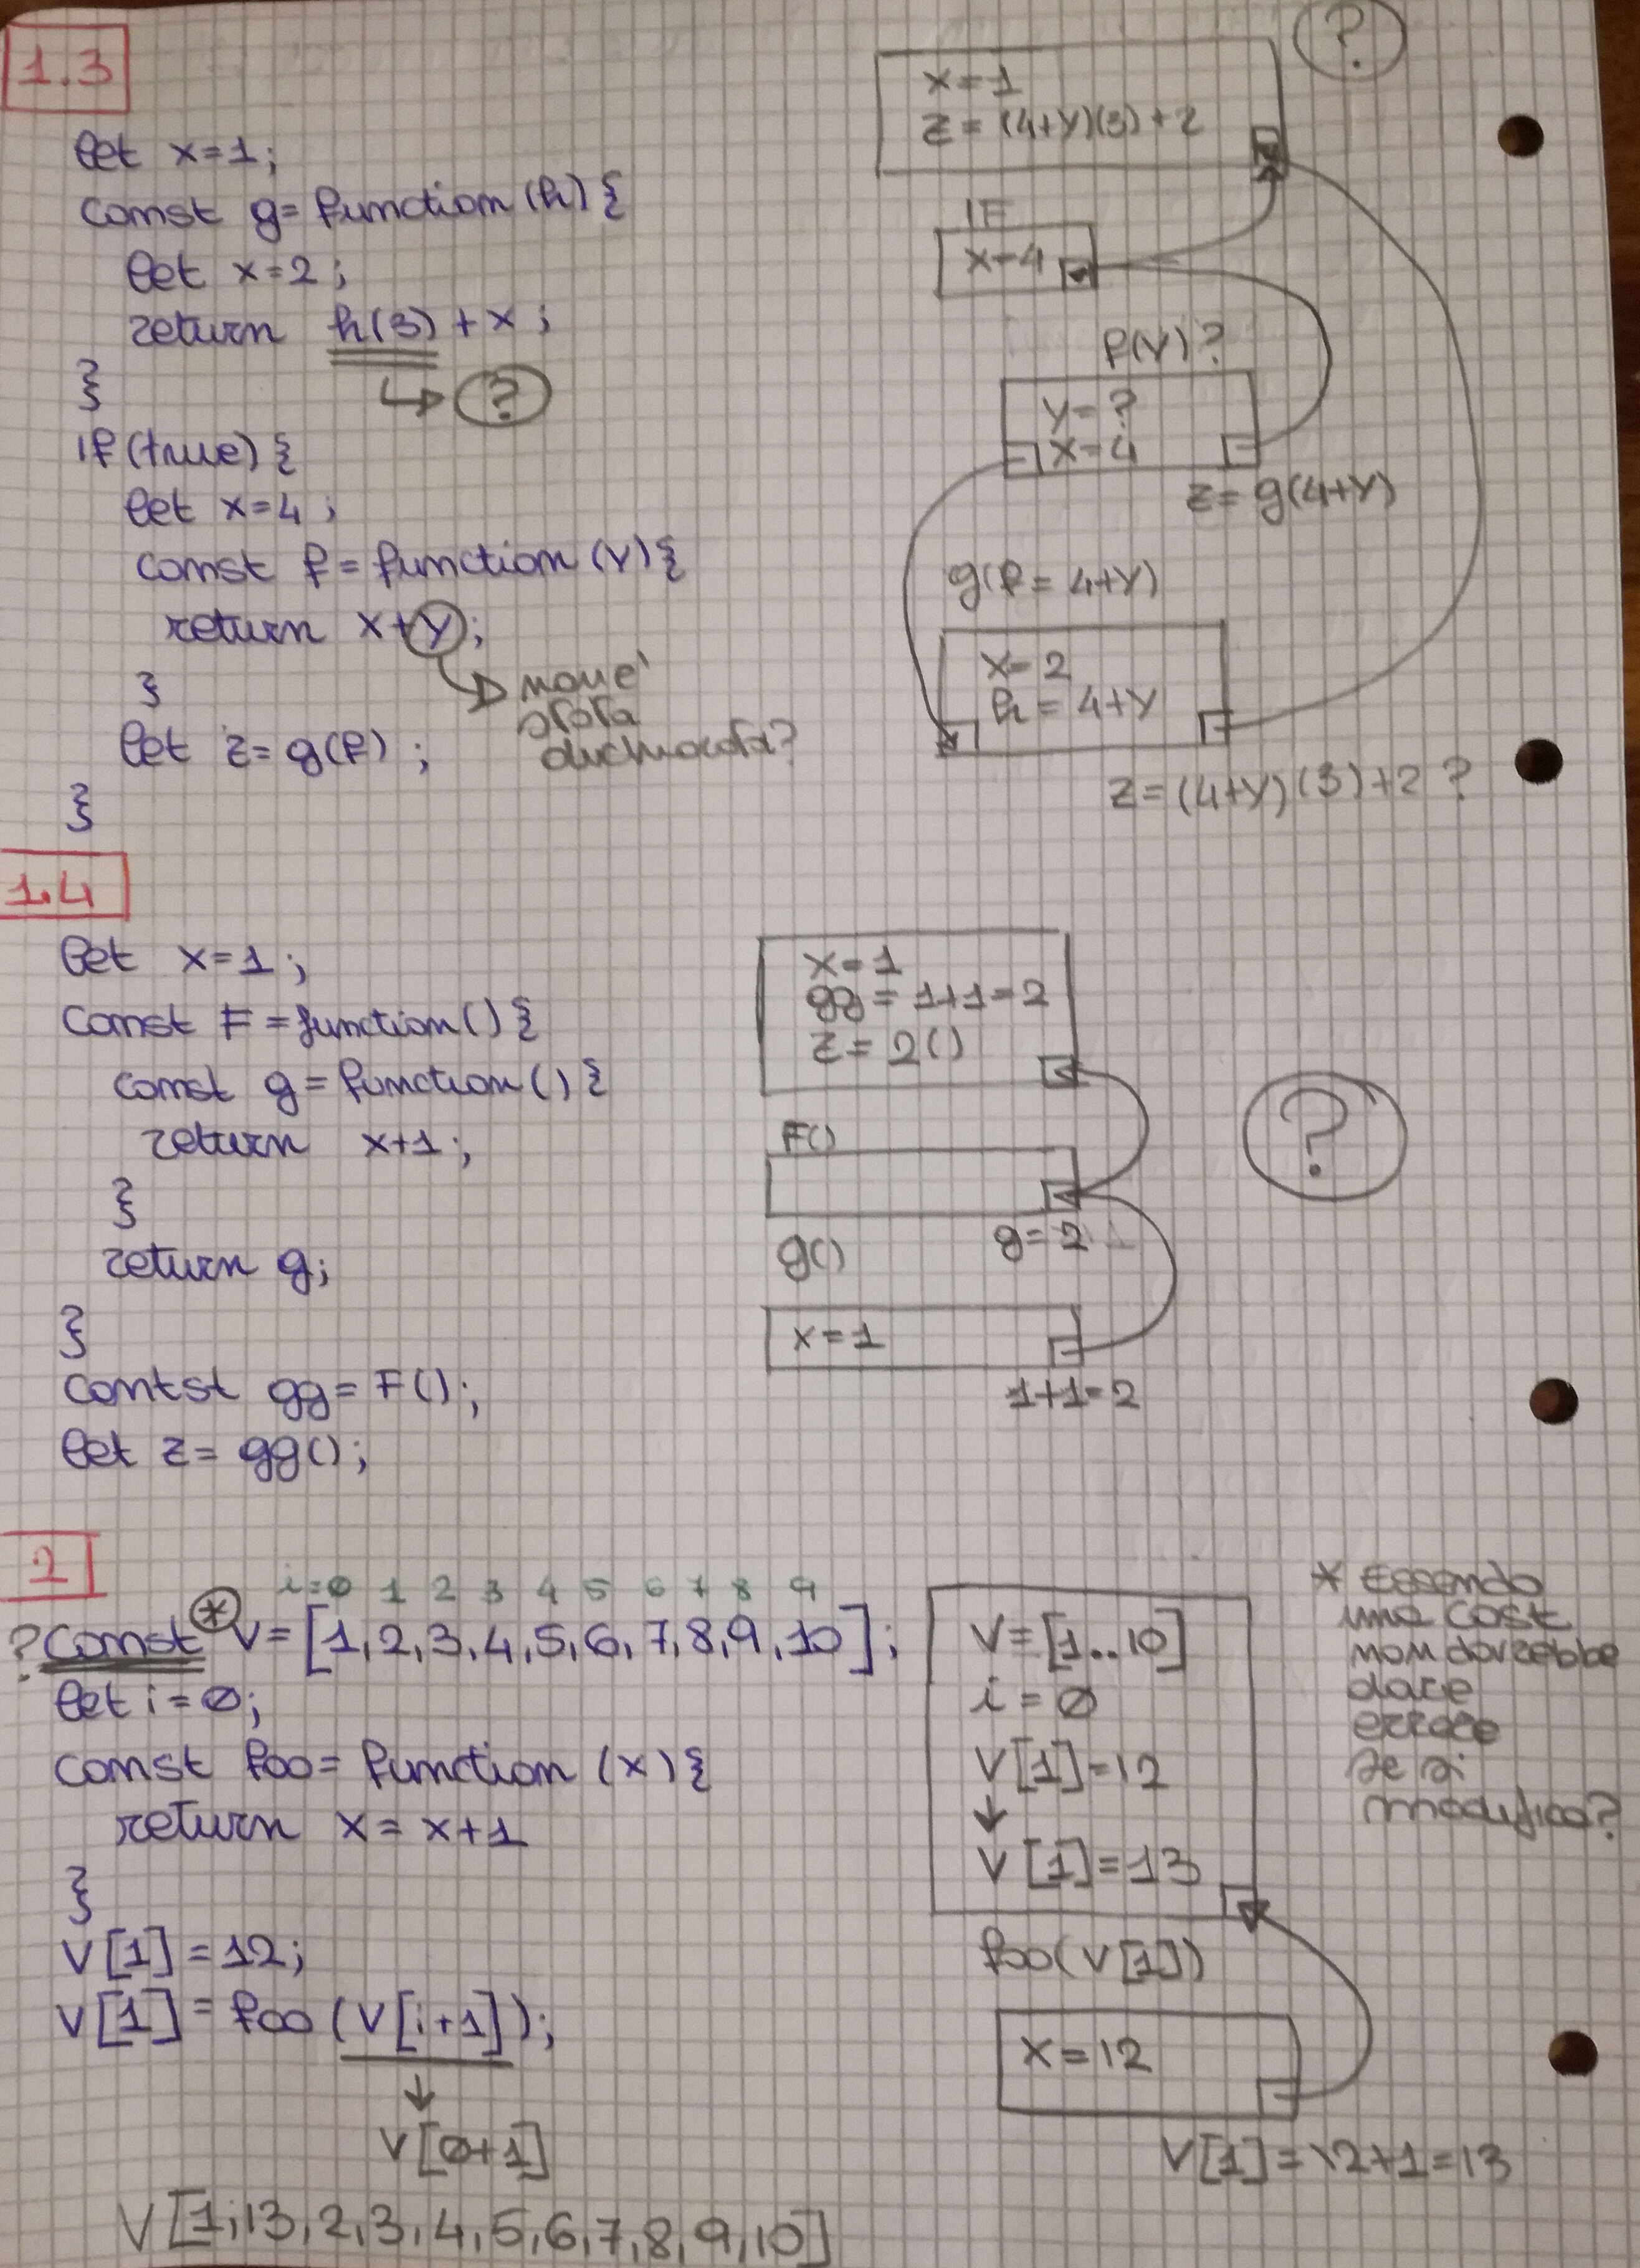 1.3
let x=1;
const g= function(h){
let x=2;
return h(3) + x;
}
?
if(true){
let x=4;
const f= function(y){
return x+y;
}
non e'
stata
dichiarata?
let z= g(f);
}
?
x=1
z= (4+y)(3)+2
IF
x=4
f(y)?
y=?
x=4
z= g(4+y)
g(f= 4+y)
x=2
h= 4+y
z=(4+y)(3)+2 ?
1.4
let x=1;
const F=function(){
const g=function(){
return x+1;
}
return g;
}
contst gg=F();
let z= gg();
x=1
gg= 1+1=2
z= 2()
F()
g=2
g()
x=1
1+1=2
?
2
i=0 1 2 3 4 5 6 7 8 9
? const * v=[1,2,3,4,5,6,7,8,9,10];
let i=0;
const foo= function (x){
return x= x+1
}
v[1]=12;
v[1]= foo(v[i+1]);
v[0+1]
v[1;13,2,3,4,5,6,7,8,9,10]
v=[1..10]
i=0
v[1]=12
v[1]=13
foo(v[1])
x=12
v[1]=12+1=13
* Essendo
una cost
non dovrebbe
dare
errore
se si
modifica?